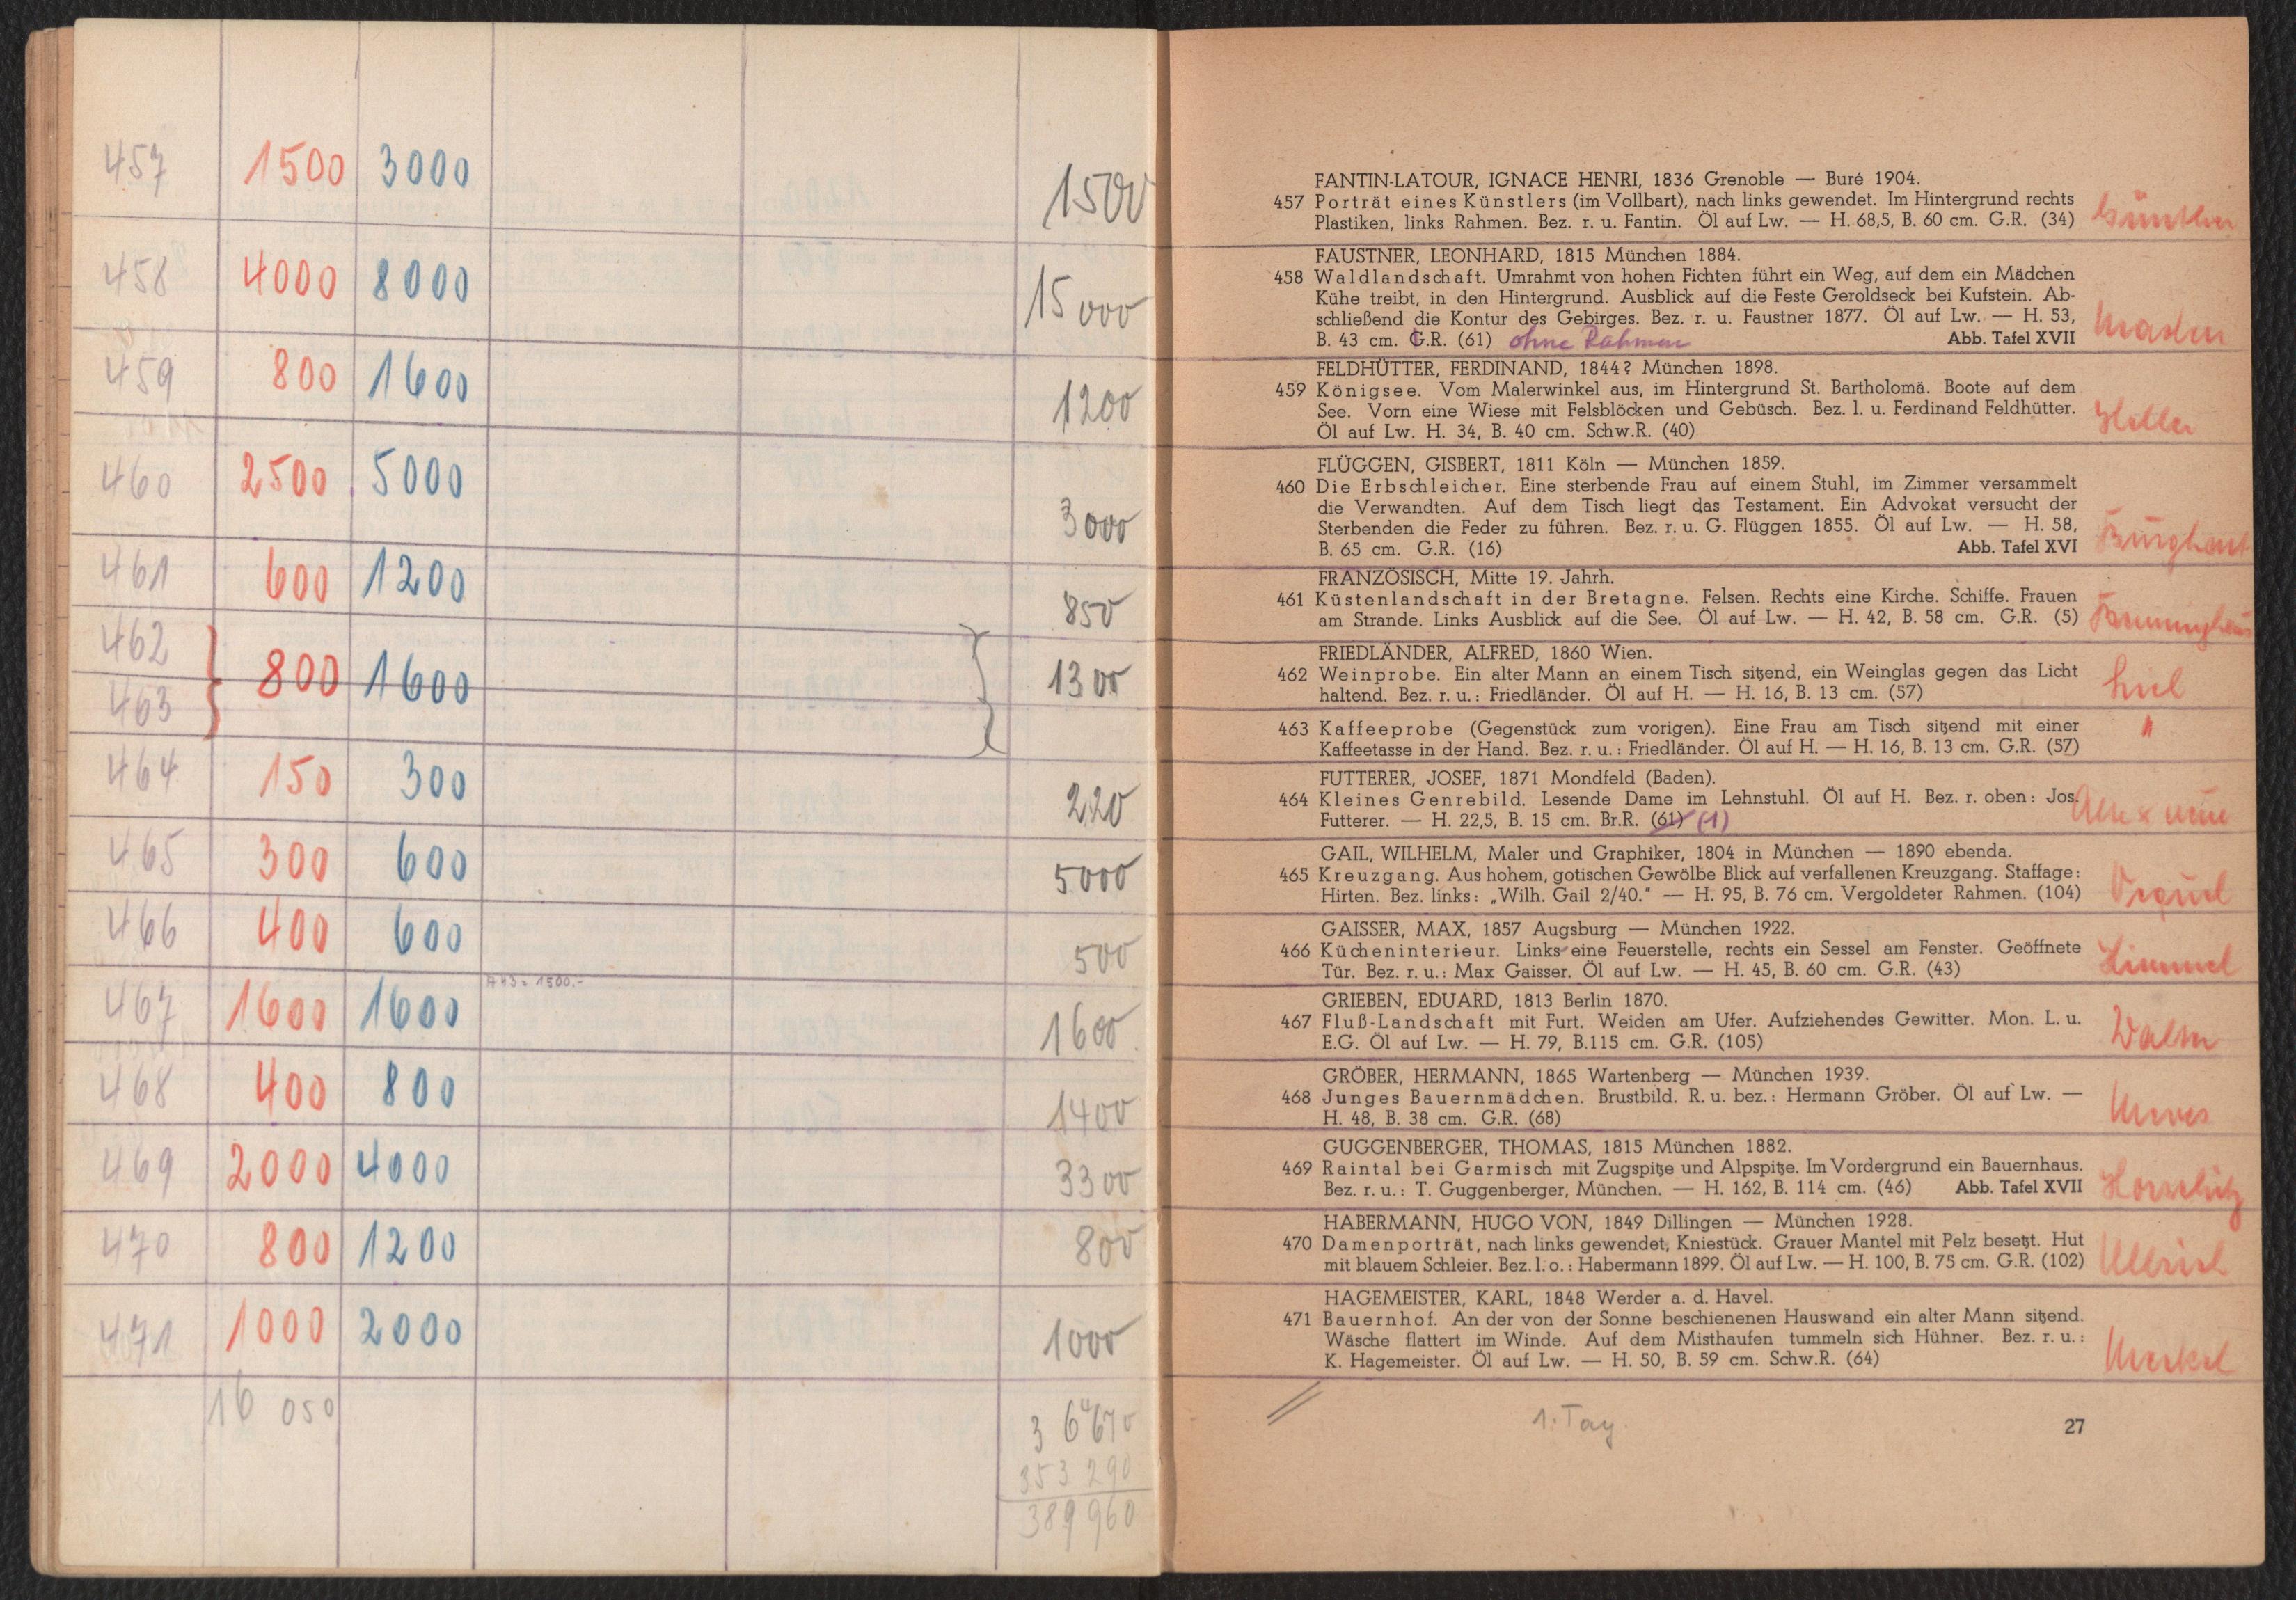 457 1500 3000 1500
458 4000 8000 15000
459 800 1600 1200
460 2500 5000 3000
461 600 1200 850
462 800 1600 1300
463
464 150 300 220
465 300 600 5000
466 400 600 500
467 1600 1600 1600
468 400 800 1400
469 2000 4000 3300
470 800 1200 800
471 1000 2000 1000
16 050 36670
353 290
389 960
FANTIN-LATOUR, IGNACE HENRI, 1836 Grenoble — Buré 1904.
457 Porträt eines Künstlers (im Vollbart), nach links gewendet. Im Hintergrund rechts
Plastiken, links Rahmen. Bez. r. u. Fantin. Öl auf Lw. — H. 68,5, B. 60 cm. G.R. (34)
Günther
FAUSTNER, LEONHARD, 1815 München 1884.
458 Waldlandschaft. Umrahmt von hohen Fichten führt ein Weg, auf dem ein Mädchen
Kühe treibt, in den Hintergrund. Ausblick auf die Feste Geroldseck bei Kufstein. Ab-
schließend die Kontur des Gebirges. Bez. r. u. Faustner 1877. Öl auf Lw. — H. 53,
B. 43 cm. G.R. (61) ohne Rahmen Abb. Tafel XVII
FELDHÜTTER, FERDINAND, 1844? München 1898.
459 Königsee. Vom Malerwinkel aus, im Hintergrund St. Bartholomä. Boote auf dem
See. Vorn eine Wiese mit Felsblöcken und Gebüsch. Bez. l. u. Ferdinand Feldhütter.
Öl auf Lw. H. 34, B. 40 cm. Schw.R. (40)
FLÜGGEN, GISBERT, 1811 Köln — München 1859.
460 Die Erbschleicher. Eine sterbende Frau auf einem Stuhl, im Zimmer versammelt
die Verwandten. Auf dem Tisch liegt das Testament. Ein Advokat versucht der
Sterbenden die Feder zu führen. Bez. r. u. G. Flüggen 1855. Öl auf Lw. — H. 58,
B. 65 cm. G.R. (16) Abb. Tafel XVI
FRANZÖSISCH, Mitte 19. Jahrh.
461 Küstenlandschaft in der Bretagne. Felsen. Rechts eine Kirche. Schiffe. Frauen
am Strande. Links Ausblick auf die See. Öl auf Lw. — H. 42, B. 58 cm. G.R. (5)
FRIEDLÄNDER, ALFRED, 1860 Wien.
462 Weinprobe. Ein alter Mann an einem Tisch sitzend, ein Weinglas gegen das Licht
haltend. Bez. r. u.: Friedländer. Öl auf H. — H. 16, B. 13 cm. (57)
463 Kaffeeprobe (Gegenstück zum vorigen). Eine Frau am Tisch sitzend mit einer "
Kaffeetasse in der Hand. Bez. r. u.: Friedländer. Öl auf H. — H. 16, B. 13 cm. G.R. (57)
FUTTERER, JOSEF, 1871 Mondfeld (Baden).
464 Kleines Genrebild. Lesende Dame im Lehnstuhl. Öl auf H. Bez. r. oben: Jos.
Futterer. — H. 22,5, B. 15 cm. Br.R. (61) (1)
GAIL, WILHELM, Maler und Graphiker, 1804 in München — 1890 ebenda.
465 Kreuzgang. Aus hohem, gotischen Gewölbe Blick auf verfallenen Kreuzgang. Staffage:
Hirten. Bez. links: „Wilh. Gail 2/40." — H. 95, B. 76 cm. Vergoldeter Rahmen. (104)
GAISSER, MAX, 1857 Augsburg — München 1922.
466 Kücheninterieur. Links eine Feuerstelle, rechts ein Sessel am Fenster. Geöffnete
Tür. Bez. r. u.: Max Gaisser. Öl auf Lw. — H. 45, B. 60 cm. G.R. (43)
Himmel
GRIEBEN, EDUARD, 1813 Berlin 1870.
467 Fluß-Landschaft mit Furt. Weiden am Ufer. Aufziehendes Gewitter. Mon. L. u.
E.G. Öl auf Lw. — H. 79, B.115 cm. G.R. (105)
GRÖBER, HERMANN, 1865 Wartenberg — München 1939.
468 Junges Bauernmädchen. Brustbild. R. u. bez.: Hermann Gröber. Öl auf Lw. —
H. 48, B. 38 cm. G.R. (68)
GUGGENBERGER, THOMAS, 1815 München 1882.
469 Raintal bei Garmisch mit Zugspitze und Alpspitze. Im Vordergrund ein Bauernhaus.
Bez. r. u.: T. Guggenberger, München. — H. 162, B. 114 cm. (46) Abb. Tafel XVII
HABERMANN, HUGO VON, 1849 Dillingen — München 1928.
470 Damenporträt, nach links gewendet, Kniestück. Grauer Mantel mit Pelz besetzt. Hut
mit blauem Schleier. Bez. l. o.: Habermann 1899. Öl auf Lw. — H. 100, B. 75 cm. G.R. (102)
Ullrich
HAGEMEISTER, KARL, 1848 Werder a. d. Havel.
471 Bauernhof. An der von der Sonne beschienenen Hauswand ein alter Mann sitzend.
Wäsche flattert im Winde. Auf dem Misthaufen tummeln sich Hühner. Bez. r. u.:
K. Hagemeister. Öl auf Lw. — H. 50, B. 59 cm. Schw.R. (64)
Merkel
1. Tag.
27